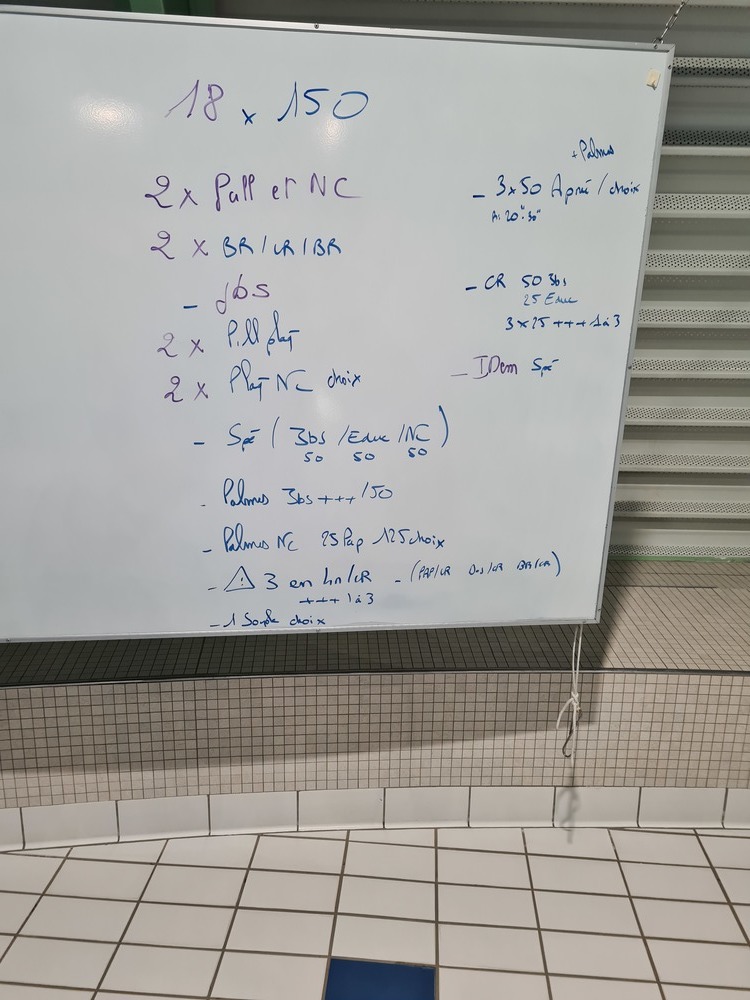 18 x 150
2 x Pull et NC
2 x BR/CR/BR
- Jbs
2 x Pull plaq
2 x Plaq NC choix
- Spé ( Jbs / Educ / NC )
50 50 50
- Palmes Jbs +++ /50
- Palmes NC 25 Pap 125 choix
- ⚠ 3 en 4n/CR - (PAP/CR Dos/CR BR/CR)
+++ 1 à 3
- 1 Souple choix
+ Palmes
- 3x50 Apnée / choix
R: 20"-30"
- CR 50 Jbs
25 Educ
3x25 +++ 1 à 3
- IDem Spé